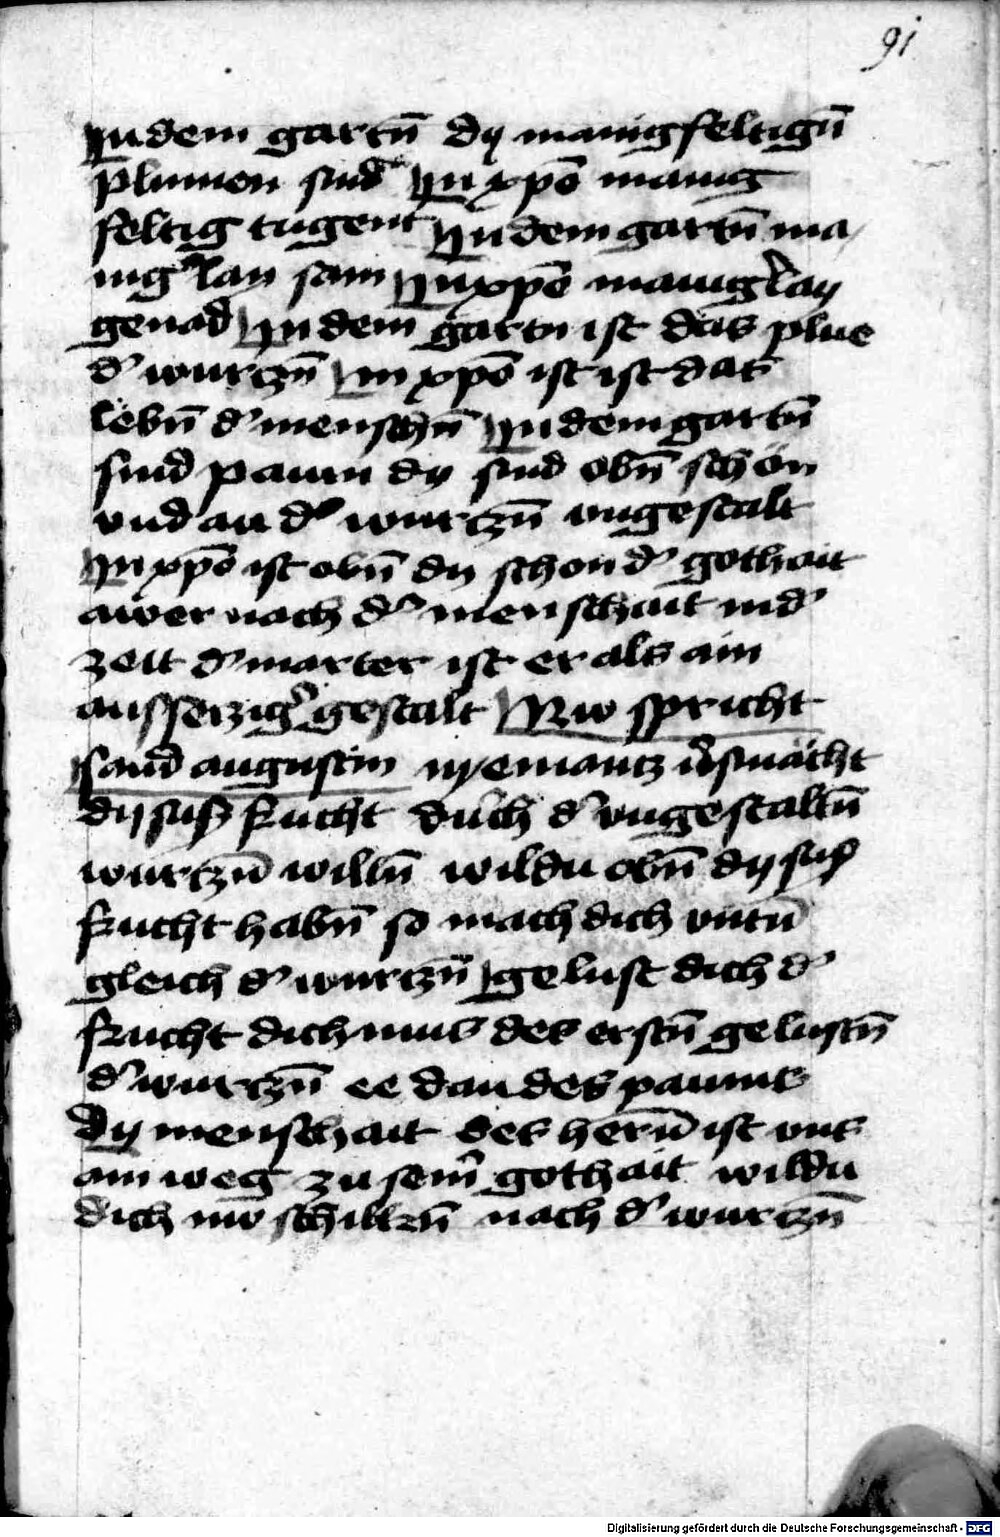 91
In dem gartn̄ dy manigfeltign̄
plumen sind In xp̄o manig
feltig tugent In dem gartn̄ ma
nig̉lay sam In xp̄o manig̉lay
genad In dem gartn ist das plue
d̉ wurczn̄ In xp̄o ist ist dat
lebn̄ d̉ menschn̄ In dem gartn̄
sind paum dy sind obn̄ schon
vnd an d̉ wurczn̄ vngestalt
In xp̄o ist obn̄ dy schon d̉ gothait
awer nach d̉ menschait in d̉
zeit d̉ marter ist er als ain
aussetzig̉ gestalt Nw spricht
sand augustin nyemantz v̉smächt
dy suß frucht durch d̉ vngestaltn̄
wurczn̄ willn̄ wildu obn̄ dy suß
frucht habn̄ so mach dich vntn̄
gleich d̉ wurczn̄ gelust dich d̉
frucht dich mus des erstn̄ gelustn̄
d̉ wurczn̄ ee dan des paums
Dy menschait des hern̄ ist vns
ain weg zu sein̉ gothait wildu
dich nw schiktzn̄ nach d̉ wurczn̄
Digitalisierung gefördert durch die Deutsche Forschungsgemeinschaft - DFG